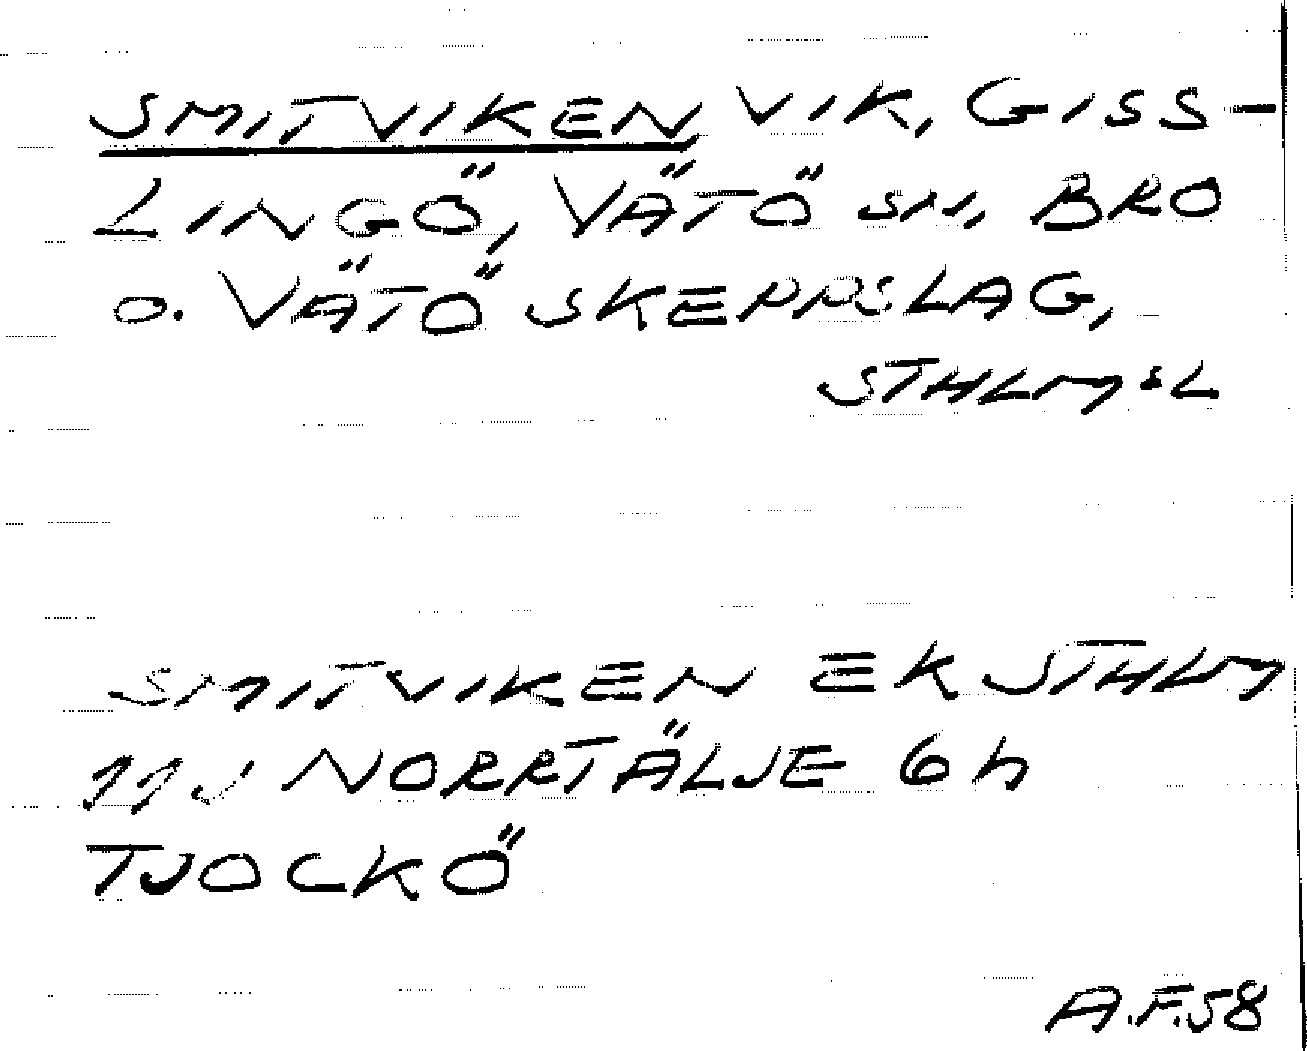 SMITVIKEN VIK, GISS-
LINGÖ, VÄTÖ SN, BRO
O. VÄTÖ SKEPPSLAG,
STHLMSL
SMITVIKEN EK STHLM
11J NORRTÄLJE 6h
TJOCKÖ
A.F.58